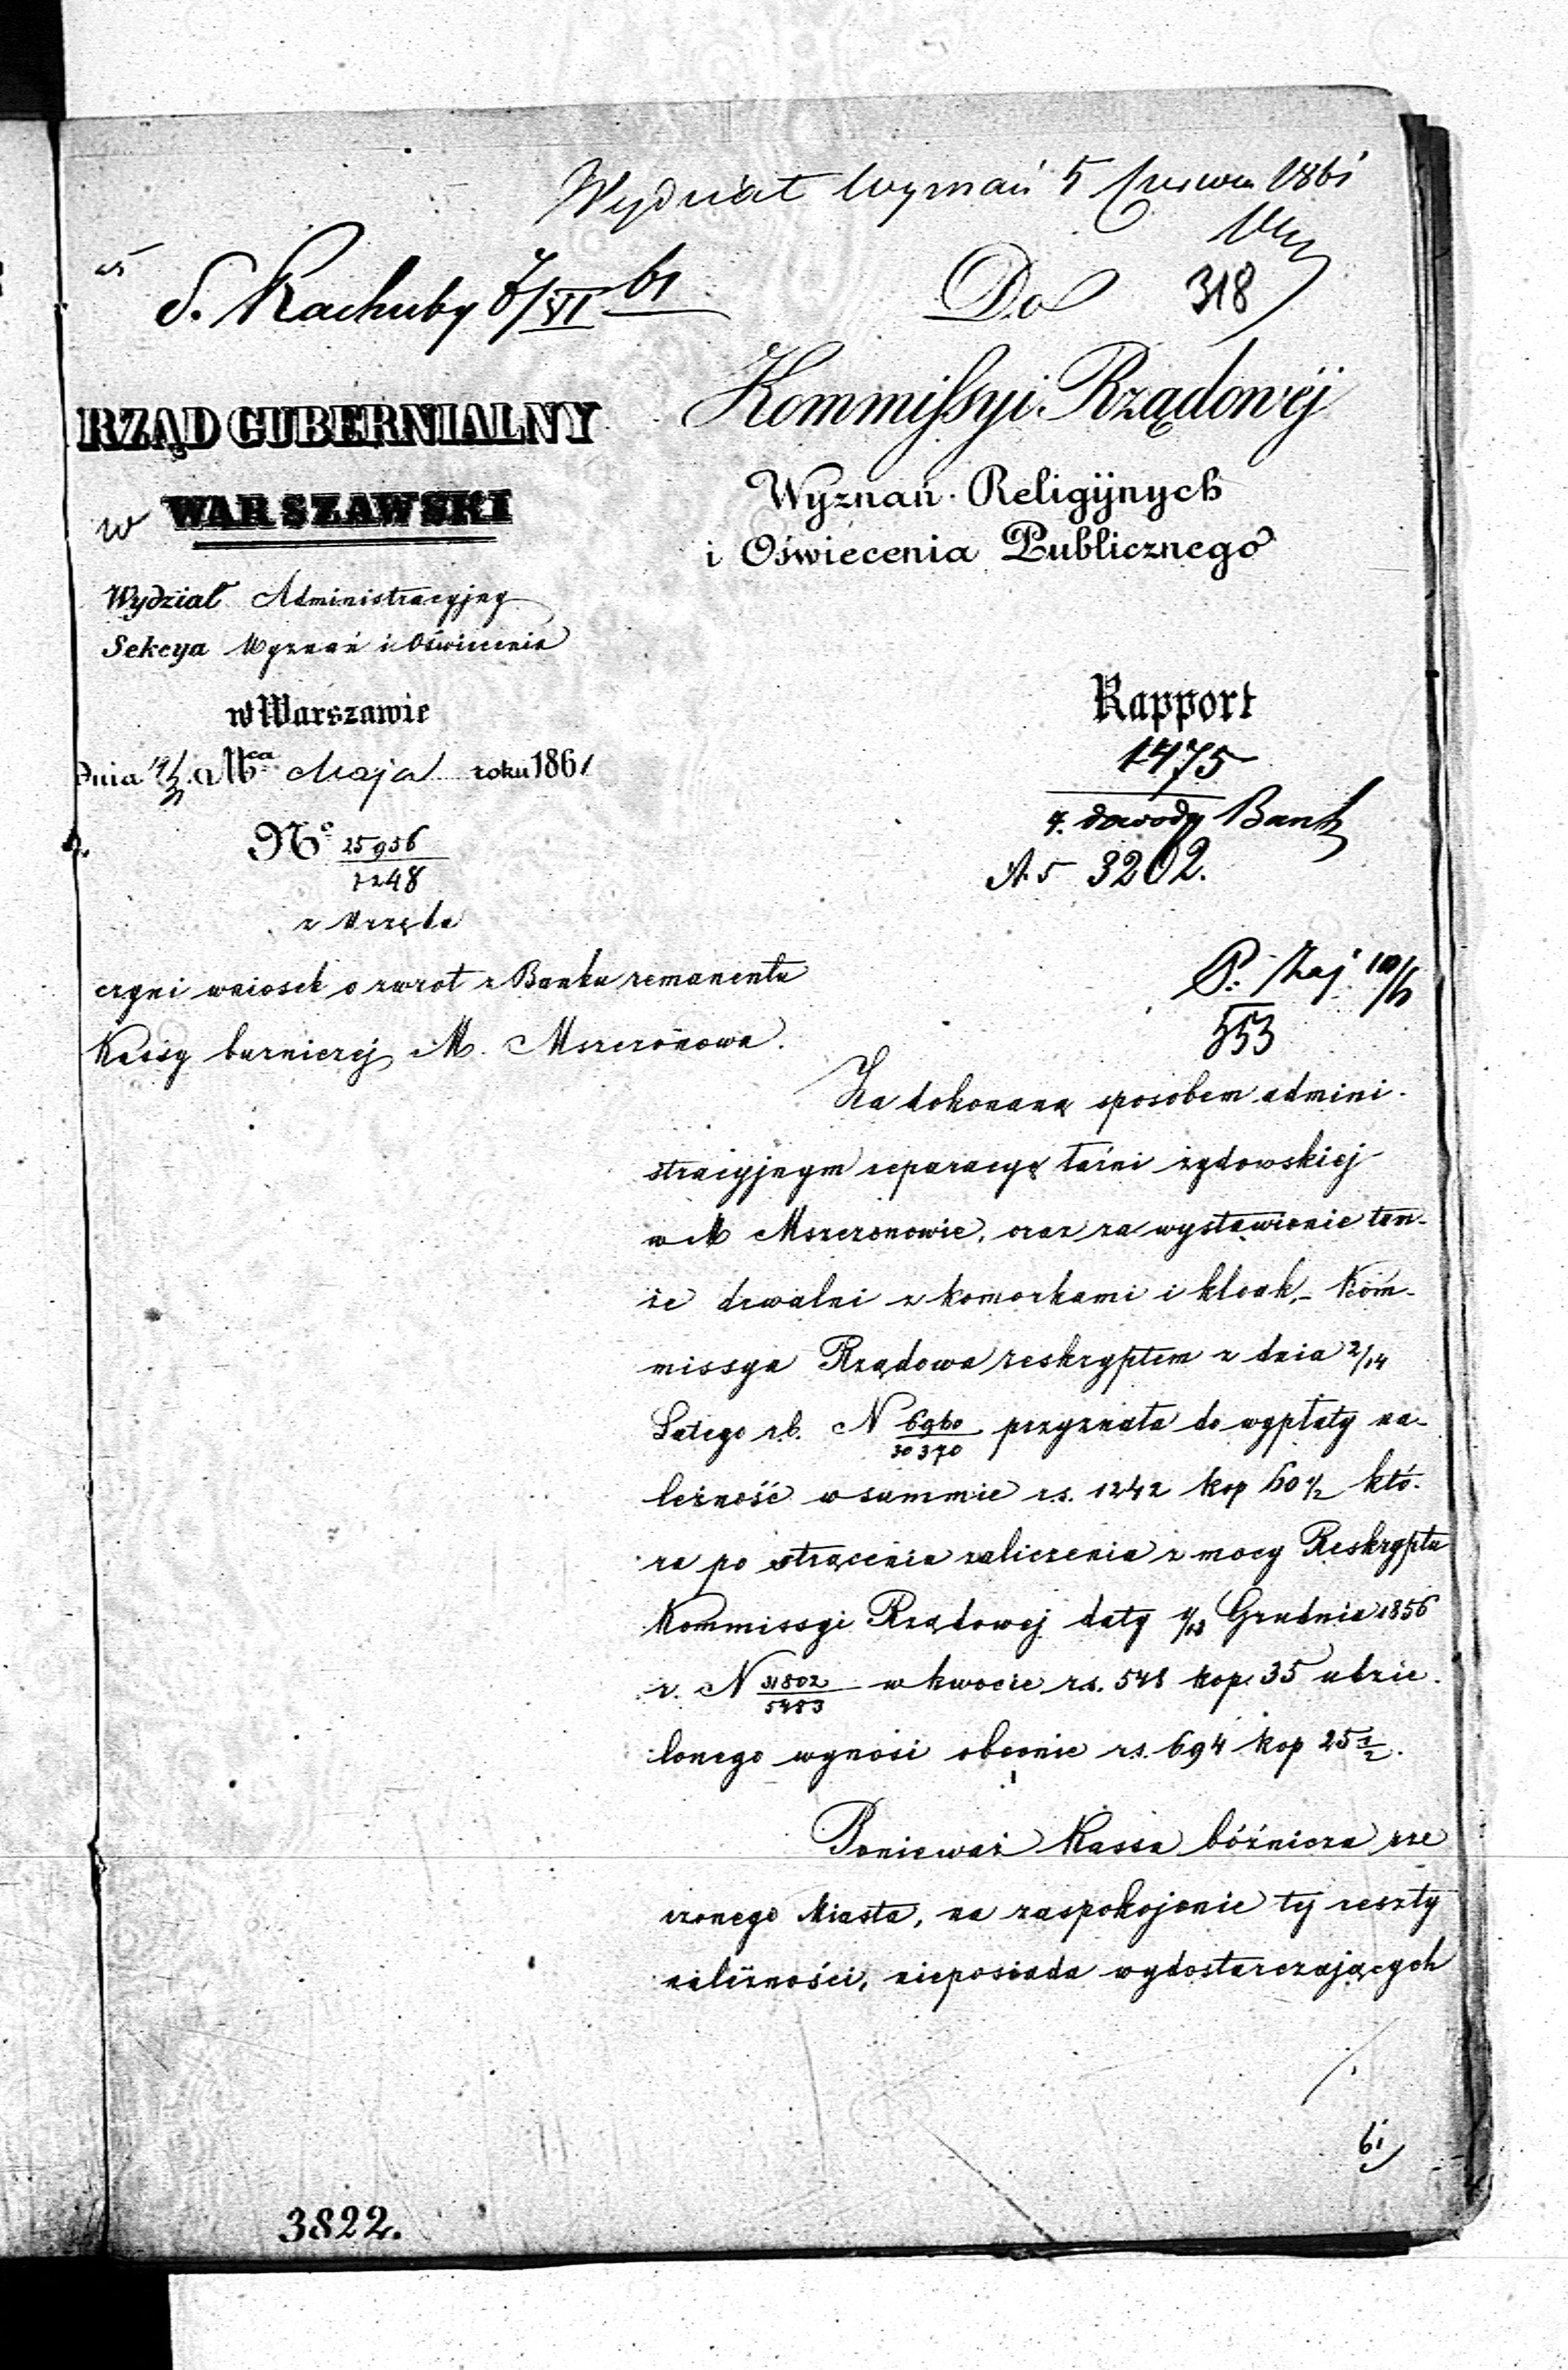 Wydział Wyznań 5 Czerwca 1861
S. Rachuby 7/VI 61
Do
318
RZĄD GUBERNIALNY
WARSZAWSKI
Wydział Administracyjny
Sekcya Wyznań i Oświecenia
w Warszawie
dnia Mca Maja roku 1861
No 25956
7248
z Urzędu
czyni wniosek o zwrot z Banku remanentu
Kassy bużniczej M. Mszczonowa.
Kommissyi Rządowéj
Wyznań Religijnych
i Oświecenia Publicznego
Rapport
1475
4. dowody Bank
A. 5 3202.
553
Za dokonaną sposobem admini-
stracyjnym reparacyę łaźni żydowskiej
w M Mszczonowie, oraz za wystawienie tam-
że drwalni z komorkami i kloak, - Kom-
missya Rządowa reskryptem z dnia 2/14
Lutego r.b. N 6960/30370 przyznała do wypłaty na-
leżność w summie r.s. 1242 kop 60 1/2 któ-
ra po strąceniu zaliczenia z mocy Reskryptu
Kommissyi Rządowej daty Grudnia 1856
r. N 31802/5483 w kwocie rs. 548 kop. 35 udzie-
lonego wynosi obecnie rs. 694 kop 25 1/2.
Ponieważ Kassa bóźnicza rze
czonego Miasta, na zaspokojenie tej reszty
należności, nieposiada wydostarczających
61
3822.